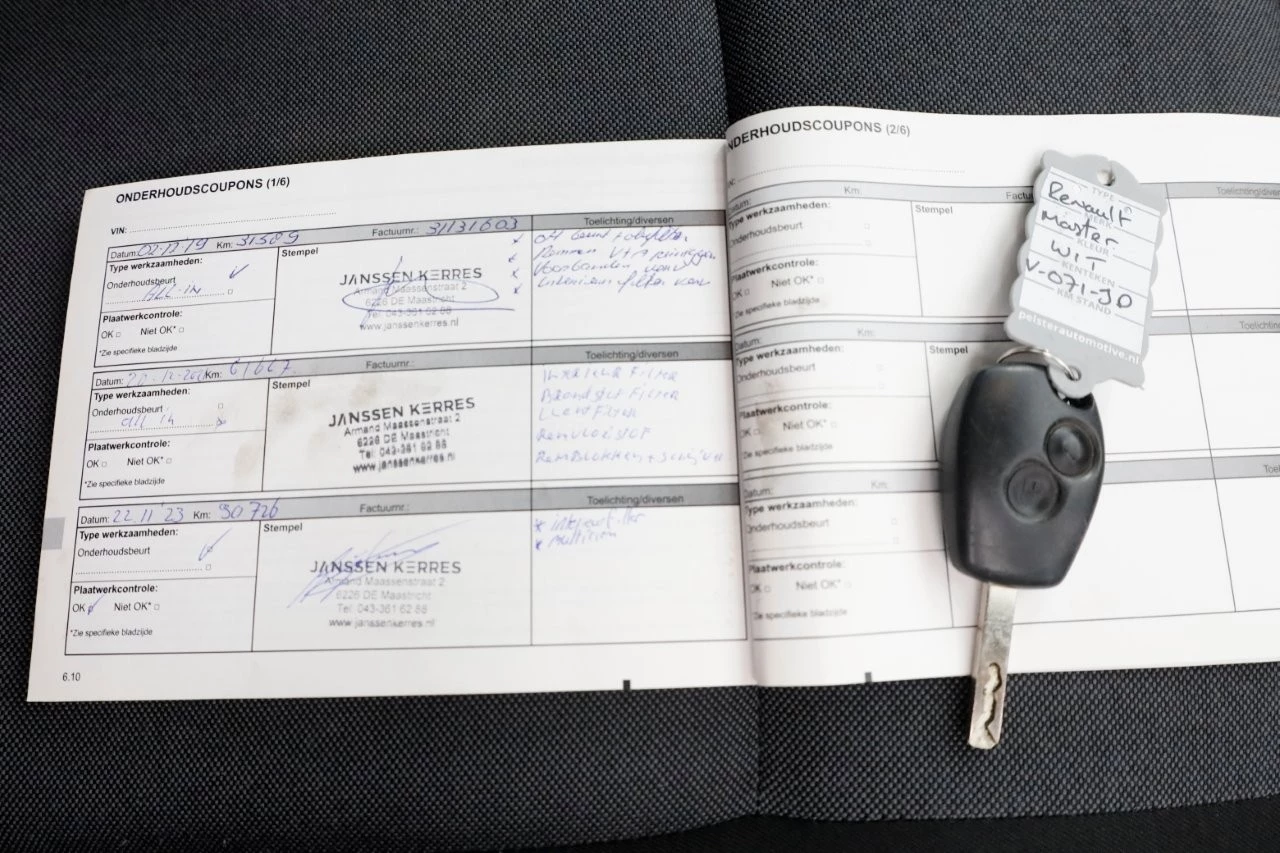 ONDERHOUDSCOUPONS (1/6)
VIN:
Datum: 02-12-19 Km: 31589 Factuurnr.: 31131603 Toelichting/diversen
Type werkzaamheden:
Onderhoudsbeurt
ALL-IN
Stempel
JANSSEN KERRES
Armand Maassenstraat 2
6226 DE Maastricht
Tel. 043-361 62 88
www.janssenkerres.nl
Plaatwerkcontrole:
OK Niet OK*
*Zie specifieke bladzijde
Datum: Km: 61667 Factuurnr.: Toelichting/diversen
Type werkzaamheden:
Onderhoudsbeurt
all in
Stempel
JANSSEN KERRES
Armand Maassenstraat 2
6226 DE Maastricht
Tel. 043-361 62 88
www.janssenkerres.nl
Interieur Filter
Brandstof Filter
Lucht Filter
Remvloeistof
Remblokken + schijven
Plaatwerkcontrole:
OK Niet OK*
*Zie specifieke bladzijde
Datum: 22 11 23 Km: 90726 Factuurnr.: Toelichting/diversen
Type werkzaamheden:
Onderhoudsbeurt
Stempel
JANSSEN KERRES
Armand Maassenstraat 2
6226 DE Maastricht
Tel. 043-361 62 88
www.janssenkerres.nl
* multiriem
Plaatwerkcontrole:
OK Niet OK*
*Zie specifieke bladzijde
6.10
ONDERHOUDSCOUPONS (2/6)
Datum: Km.
Type werkzaamheden:
Onderhoudsbeurt
Stempel
Plaatwerkcontrole:
OK Niet OK*
*Zie specifieke bladzijde
Datum: Km:
Type werkzaamheden:
Onderhoudsbeurt
Stempel
Plaatwerkcontrole:
OK Niet OK*
*Zie specifieke bladzijde
Datum: Km:
Type werkzaamheden:
Onderhoudsbeurt
Plaatwerkcontrole:
OK Niet OK*
*Zie specifieke bladzijde
TYPE
Renault
MERK
Master
KLEUR
WIT
KENTEKEN
V-071-JD
KM STAND
pelsterautomotive.nl